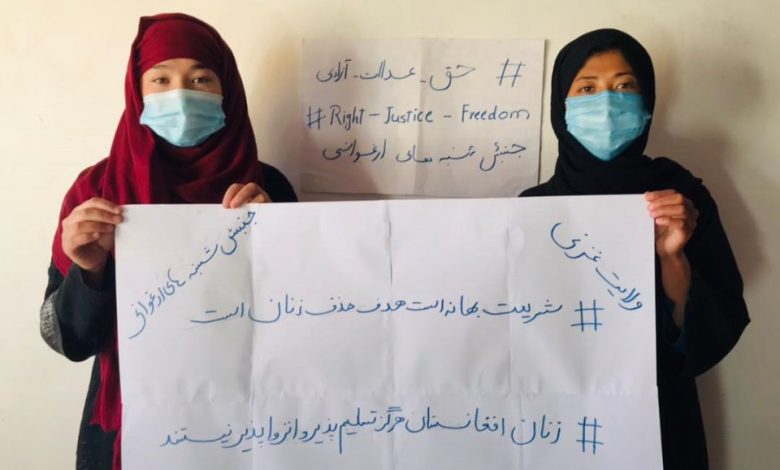 # حق - عدالت - آزادی
# Right - Justice - Freedom
جنبش شنبه های ارغوانی
ولایت غزنی
جنبش شنبه های ارغوانی
# شریعت بهانه است هدف حذف زنان است
# زنان افغانستان هرگز تسلیم پذیر و انزوا پذیر نیستند